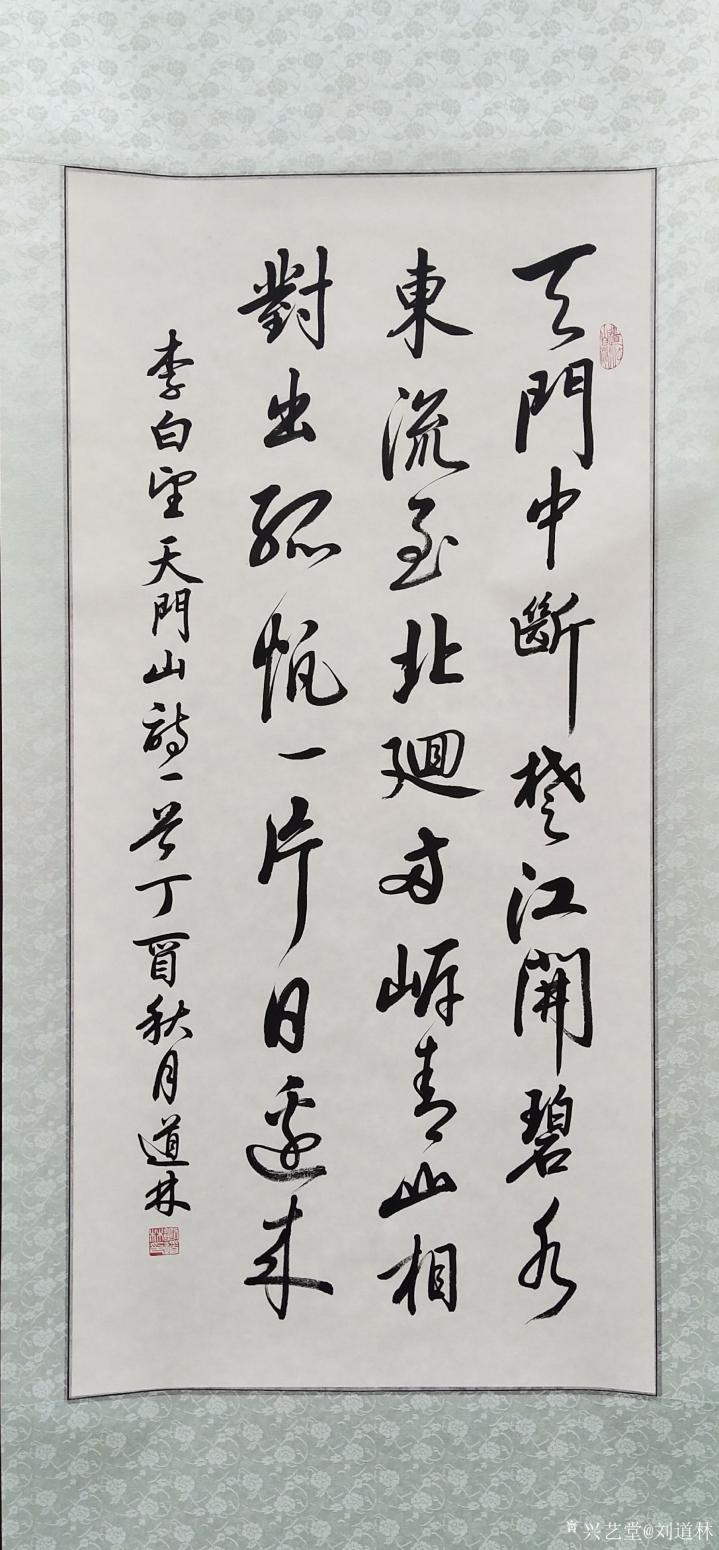 天門中斷楚江開碧水
東流至北迴兩岸青山相
對出孤帆一片日邊來
李白望天門山詩一首丁酉秋月道林
兴艺堂@刘道林